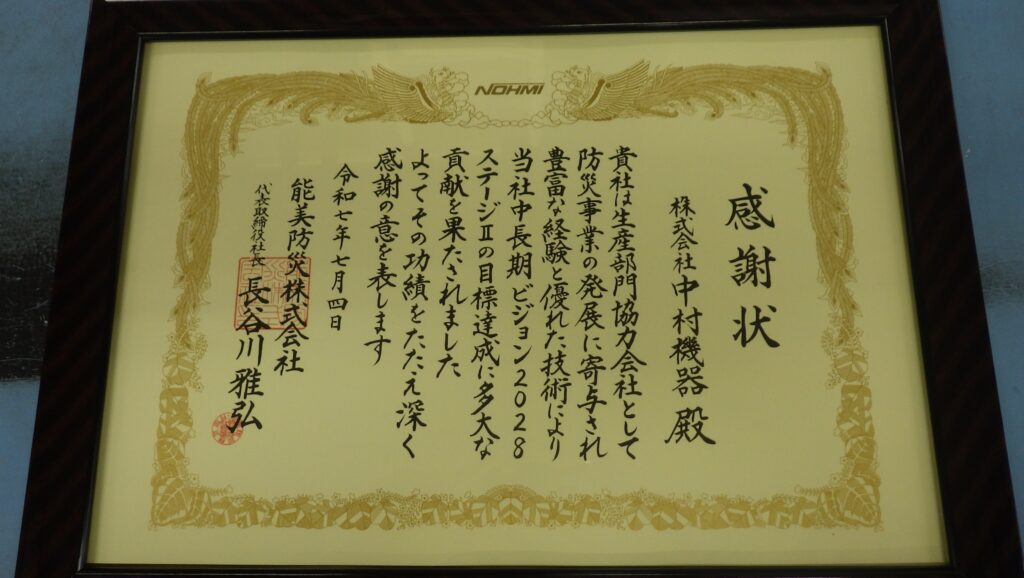 NOHMI
感謝状
株式会社中村機器殿
貴社は生産部門協力会社として
防災事業の発展に寄与され
豊富な経験と優れた技術により
当社中長期ビジョン2028
ステージⅡの目標達成に多大な
貢献を果たされました
よってその功績をたたえ深く
感謝の意を表します
令和七年七月四日
能美防災株式会社
代表取締役社長 長谷川雅弘